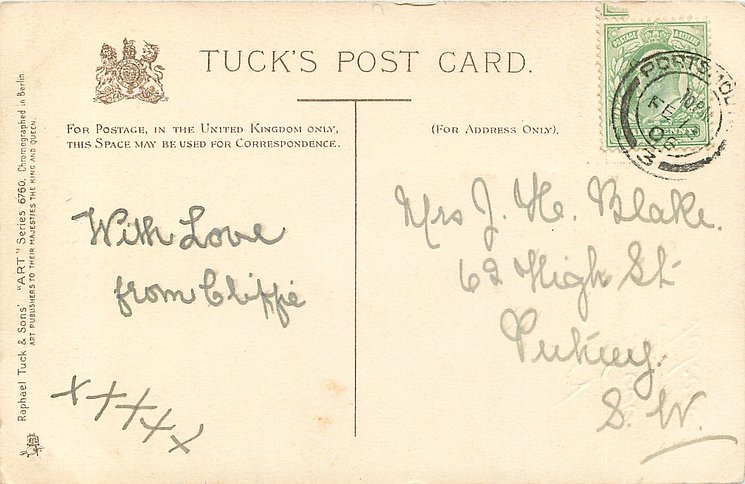 TUCK'S POST CARD.
FOR POSTAGE, IN THE UNITED KINGDOM ONLY,
THIS SPACE MAY BE USED FOR CORRESPONDENCE.
(FOR ADDRESS ONLY).
Raphael Tuck & Sons' "ART" Series 6760. Chromographed in Berlin.
ART PUBLISHERS TO THEIR MAJESTIES THE KING AND QUEEN.
With Love
from Cliffie
x x x x x
Mrs J. H. Blake.
62 High St
Putney.
S. W.
POSTAGE & REVENUE
PENNY
PORTSMO
FE
06
3